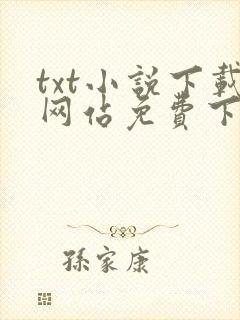 txt小説下載
网站免費下
孫家康